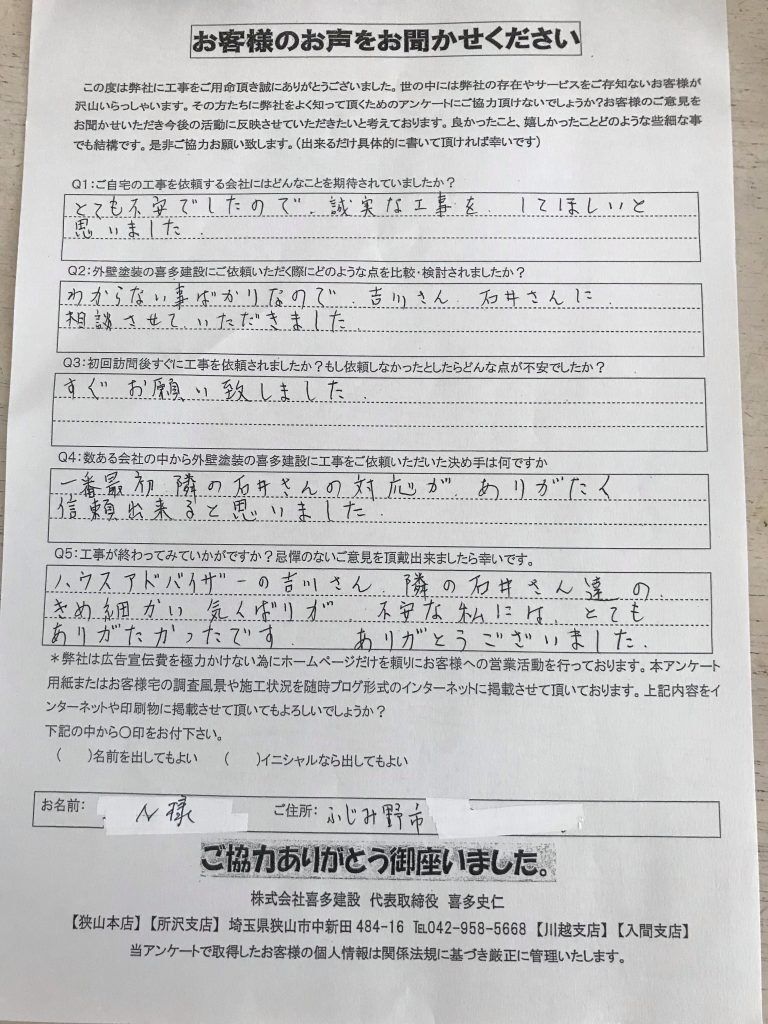 お客様のお声をお聞かせください
この度は弊社に工事をご用命頂き誠にありがとうございました。世の中には弊社の存在やサービスをご存知ないお客様が
沢山いらっしゃいます。その方たちに弊社をよく知って頂くためのアンケートにご協力頂けないでしょうか?お客様のご意見を
お聞かせいただき今後の活動に反映させていただきたいと考えております。良かったこと、嬉しかったことどのような些細な事
でも結構です。是非ご協力お願い致します。(出来るだけ具体的に書いて頂ければ幸いです)
Q1:ご自宅の工事を依頼する会社にはどんなことを期待されていましたか?
とても不安でしたので、誠実な工事を、してほしいと
思いました。
Q2:外壁塗装の喜多建設にご依頼いただく際にどのような点を比較・検討されましたか?
わからない事ばかりなので、吉川さん、石井さんに、
相談させて、いただきました。
Q3:初回訪問後すぐに工事を依頼されましたか?もし依頼しなかったとしたらどんな点が不安でしたか?
すぐ お願い致しました。
Q4:数ある会社の中から外壁塗装の喜多建設に工事をご依頼いただいた決め手は何ですか
一番最初、隣の石井さんの対応が、ありがたく
信頼出来ると思いました。
Q5:工事が終わってみていかがですか?忌憚のないご意見を頂戴出来ましたら幸いです。
ハウスアドバイザーの吉川さん、隣の石井さん達の、
きめ細かい気くばりが、不安な私には、とても
ありがたかったです。 ありがとうございました。
*弊社は広告宣伝費を極力かけない為にホームページだけを頼りにお客様への営業活動を行っております。本アンケート
用紙またはお客様宅の調査風景や施工状況を随時ブログ形式のインターネットに掲載させて頂いております。上記内容をイ
ンターネットや印刷物に掲載させて頂いてもよろしいでしょうか?
下記の中から〇印をお付下さい。
( )名前を出してもよい ( )イニシャルなら出してもよい
お名前: N様 ご住所: ふじみ野市
ご協力ありがとう御座いました。
株式会社喜多建設 代表取締役 喜多史仁
【狭山本店】【所沢支店】 埼玉県狭山市中新田484-16 ℡042-958-5668 【川越支店】【入間支店】
当アンケートで取得したお客様の個人情報は関係法規に基づき厳正に管理いたします。